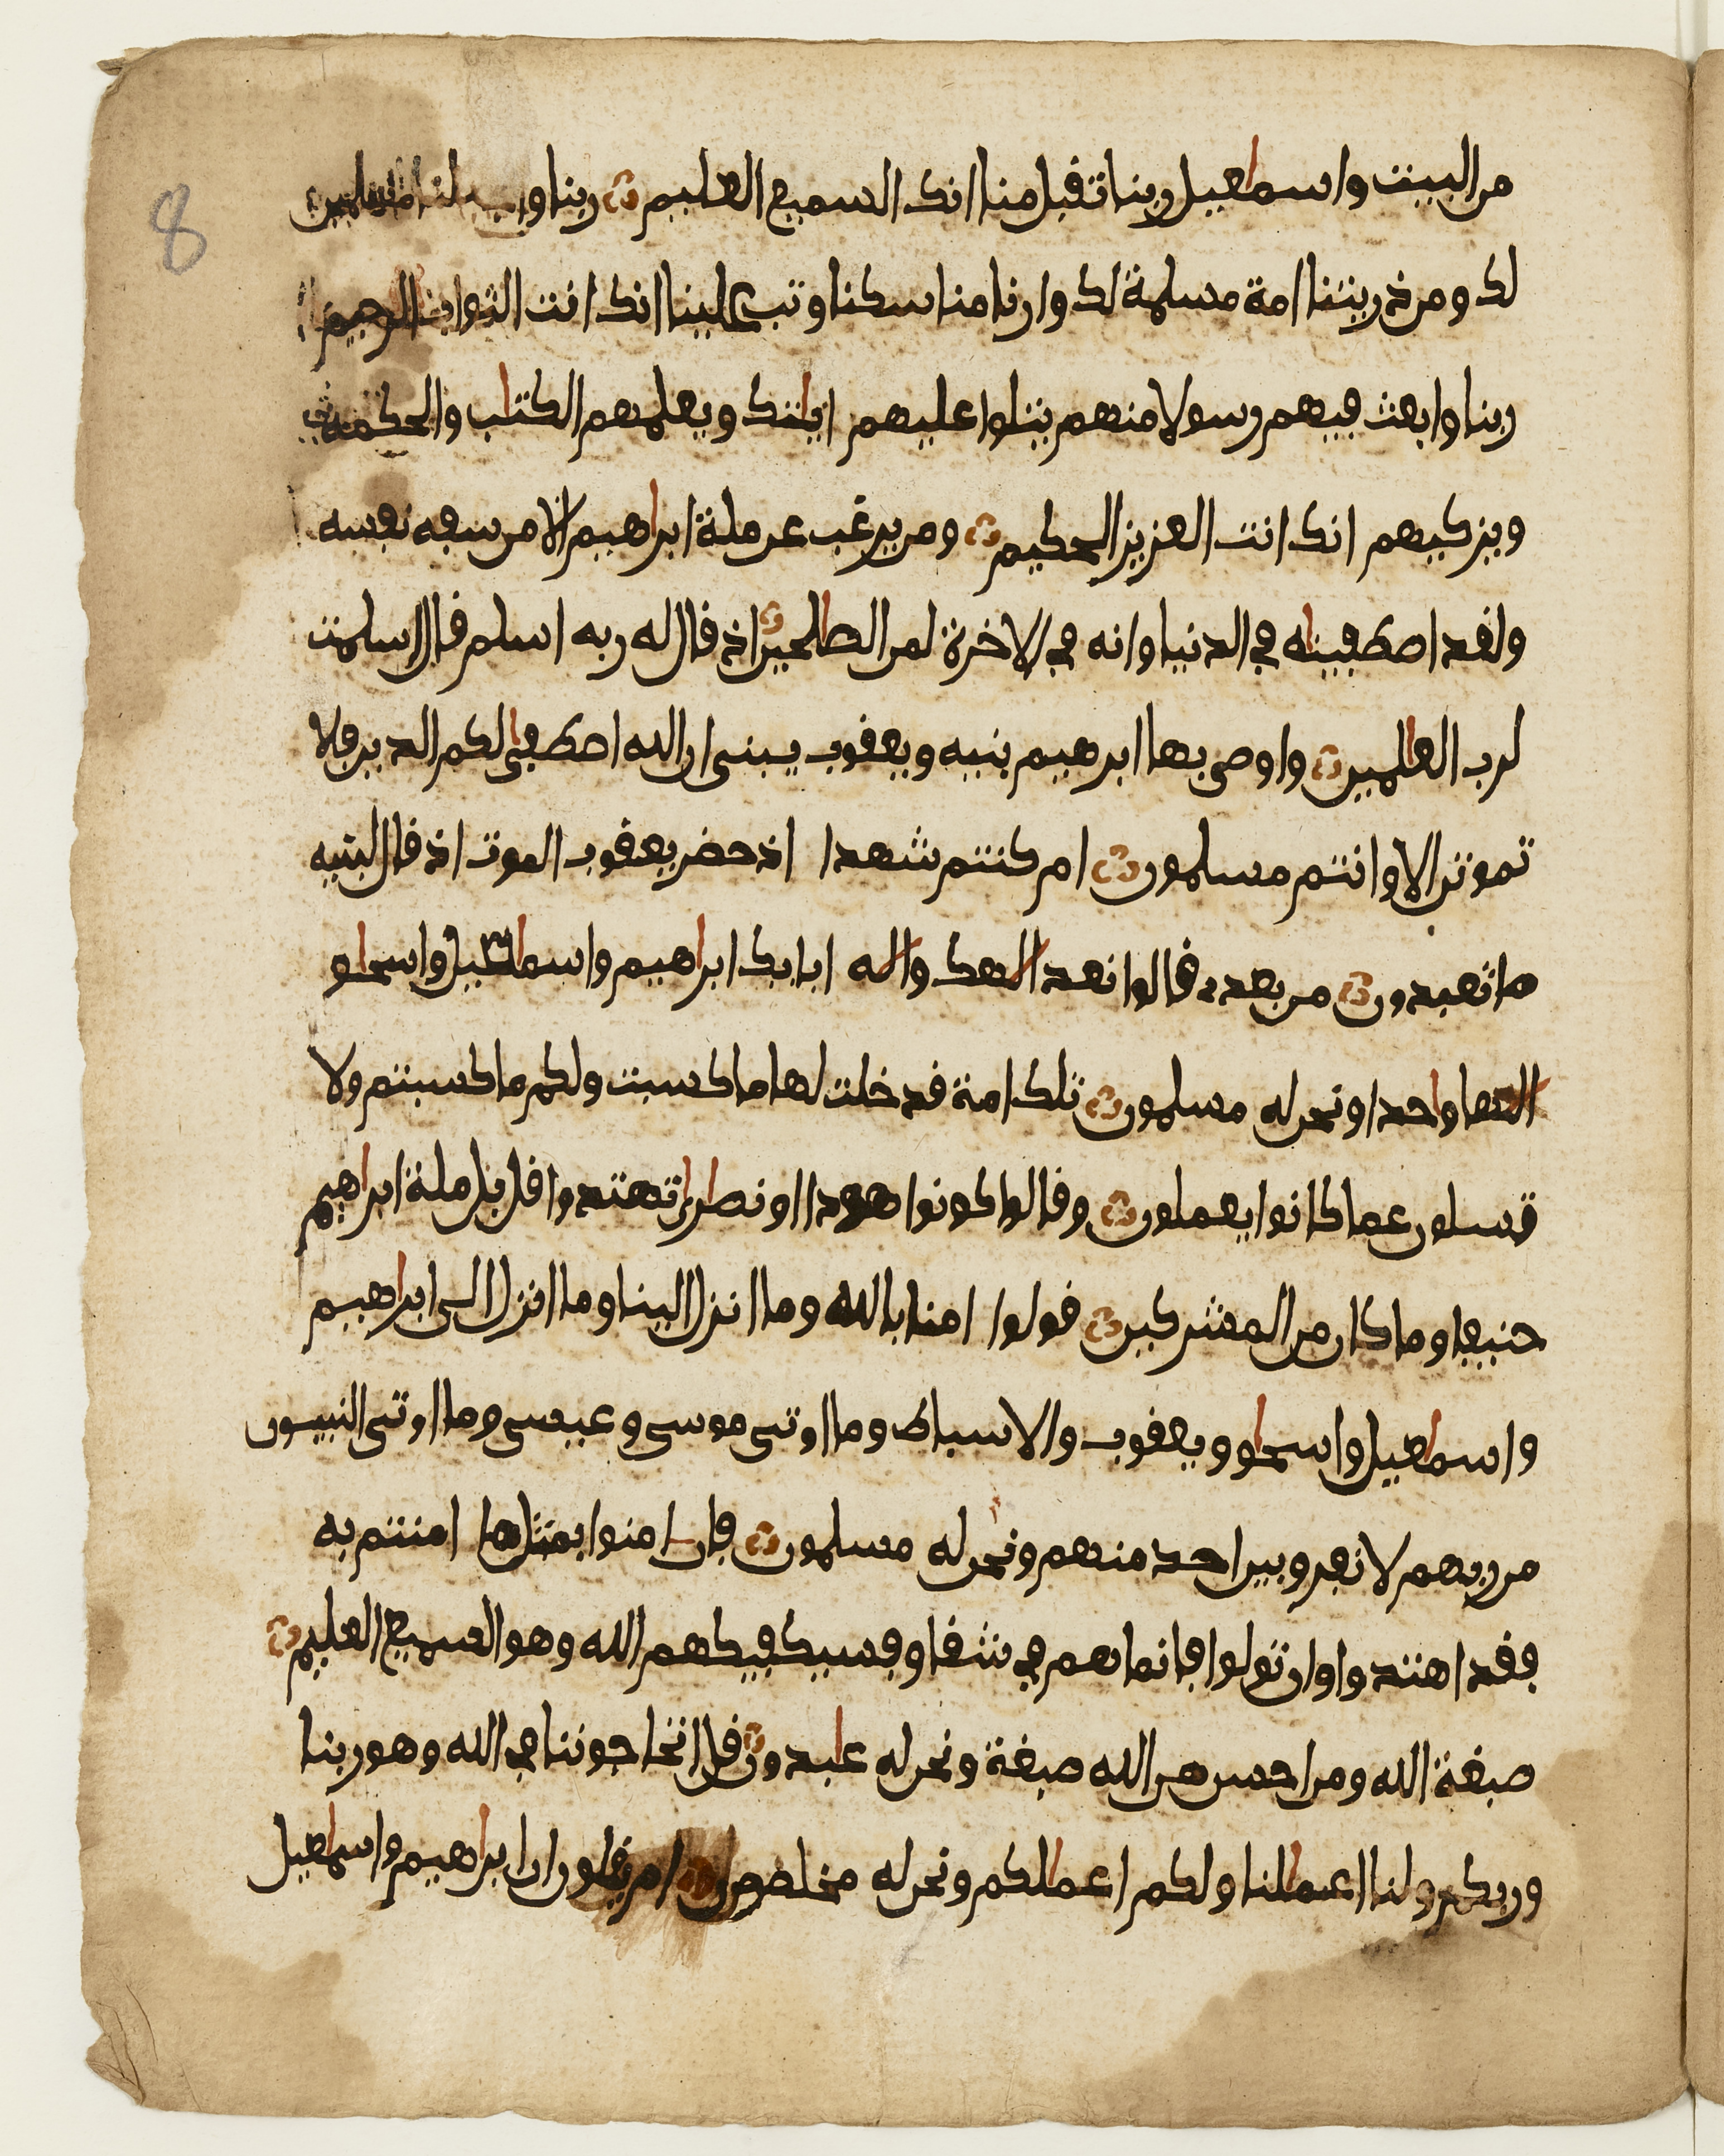 8
من البيت واسماعيل ربنا تقبل منا انك السميع العليم ربنا
لك ومن ذريتنا امة مسلمة لك وارنا مناسكنا وتب علينا انك انت التواب الرحيم
ربنا وابعث فيهم رسولا منهم يتلوا عليهم ايتك ويعلمهم الكتاب والحكمة
ويزكيهم انك انت العزيز الحكيم ومن يرغب عن ملة ابراهيم الا من سفه نفسه
ولقد اصطفيناه في الدنيا وانه في الاخرة لمن الصالحين اذ قال له ربه اسلم قال اسلمت
لرب العالمين واوصى بها ابرهيم بنيه ويعقوب يبنى ان الله اصطفى لكم الدين فلا
تموتن الا وانتم مسلمون ام كنتم شهدا اذ حضر يعقوب الموت اذ قال لبنيه
ما تعبدون من بعدي قالوا نعبد الهك واله ابايك ابراهيم واسماعيل واسحاق
الها واحدا ونحن له مسلمون تلك امة قد خلت لها ما كسبت ولكم ما كسبتم ولا
تسلون عما كانوا يعملون وقالوا كونوا هودا او نصارى تهتدوا قل بل ملة ابراهيم
حنيفا وما كان من المشركين قولوا امنا بالله وما انزل الينا وما انزل الى ابراهيم
واسماعيل واسحاق ويعقوب والاسباط وما اوتى موسى وعيسى وما اوتى النبيون
من ربهم لا نفرق بين احد منهم ونحن له مسلمون فان امنوا بمثل ما امنتم به
فقد اهتدوا وان تولوا فانما هم في شقاق فسيكفيكهم الله وهو السميع العليم
صبغة الله ومن احسن من الله صبغة ونحن له عابدون قل اتحاجوننا في الله وهو ربنا
وربكم ولنا اعمالنا ولكم اعمالكم ونحن له مخلصون ام يقولون ان ابراهيم واسماعيل